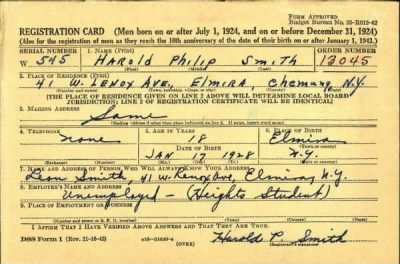 FORM APPROVED
Budget Bureau No. 33-R012-42
REGISTRATION CARD (Men born on or after July 1, 1924, and on or before December 31, 1924)
(Also for the registration of men as they reach the 18th anniversary of the date of their birth on or after January 1, 1943.)
SERIAL NUMBER 1. NAME (Print) ORDER NUMBER
W 545 Harold Philip Smith 13045
(First) (Middle) (Last)
2. PLACE OF RESIDENCE (Print)
41 W. Lenox Ave, Elmira Chemung N.Y.
[THE PLACE OF RESIDENCE GIVEN ON LINE 2 ABOVE WILL DETERMINE LOCAL BOARD
JURISDICTION; LINE 2 OF REGISTRATION CERTIFICATE WILL BE IDENTICAL]
3. MAILING ADDRESS
Same
4. TELEPHONE 5. AGE IN YEARS 6. PLACE OF BIRTH
none 18 Elmira
DATE OF BIRTH
JAN 17 1928 N.Y.
(Exchange) (Number) (Mo.) (Day) (Yr.) (State or country)
7. NAME AND ADDRESS OF PERSON WHO WILL ALWAYS KNOW YOUR ADDRESS
Leon Smith, 41 W. Lenox Ave, Elmira, N.Y.
8. EMPLOYER'S NAME AND ADDRESS
Unemployed - (Heights Student)
9. PLACE OF EMPLOYMENT OR BUSINESS
(Number and street or R. F. D. number) (Town) (County) (State)
I AFFIRM THAT I HAVE VERIFIED ABOVE ANSWERS AND THAT THEY ARE TRUE.
DSS Form 1 (OVER) Harold P. Smith